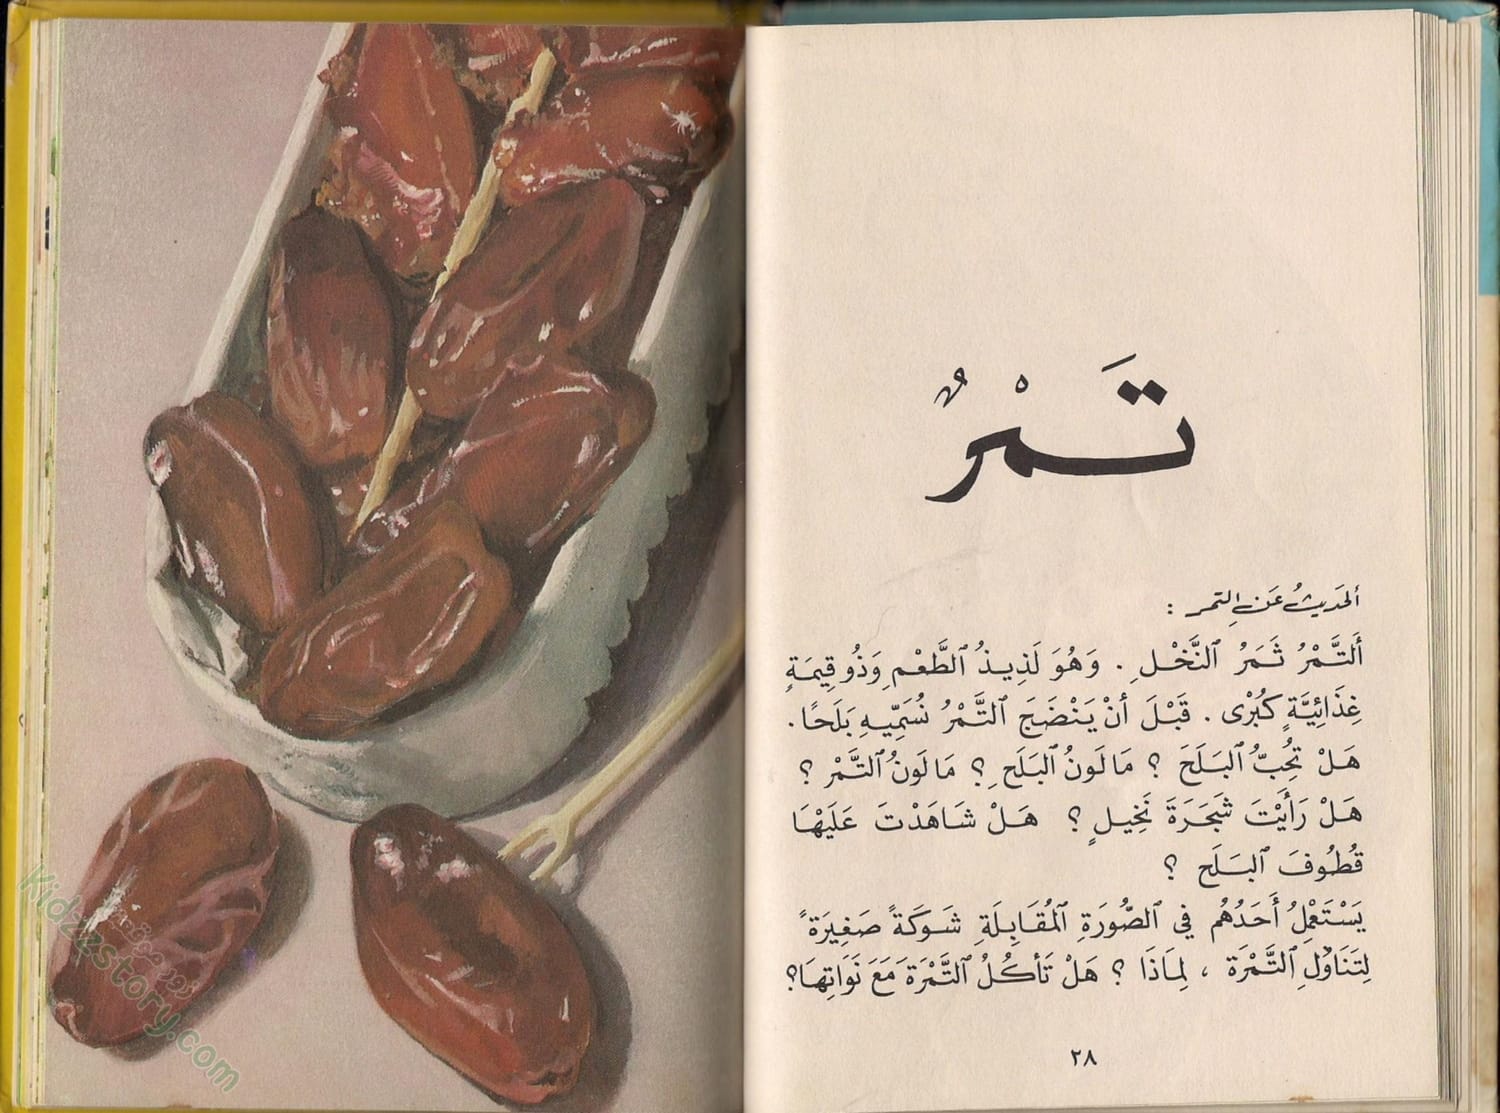 تَمْرٌ
ألحَديثُ عَنِ التمر :
أَلتَّمْرُ ثَمَرُ ٱلنَّخْلِ . وَهُوَ لَذِيذُ ٱلطَّعْمِ وَذُو قِيمَةٍ
غِذَائِيَّةٍ كُبْرٰى . قَبْلَ أنْ يَنْضَجَ ٱلتَّمْرُ نُسَمِّيهِ بَلَحًا .
هَلْ تُحِبُّ ٱلبَلَحَ ؟ مَا لَونُ ٱلبَلَحِ ؟ مَا لَونُ ٱلتَّمْرِ ؟
هَلْ رَأَيْتَ شَجَرَةَ نَخِيلٍ ؟ هَلْ شَاهَدْتَ عَلَيْهَا
قُطُوفَ ٱلبَلَحِ ؟
يَسْتَعْمِلُ أَحَدُهُم فِي ٱلصُّورَةِ ٱلمُقَابِلَةِ شَوكَةً صَغِيرَةً
لِتَنَاوُلِ ٱلتَّمْرَةِ ، لِمَاذَا ؟ هَلْ تَأكُلُ ٱلتَّمْرَةَ مَعَ نَوَاتِهَا؟
٢٨
Kidzzstory.com